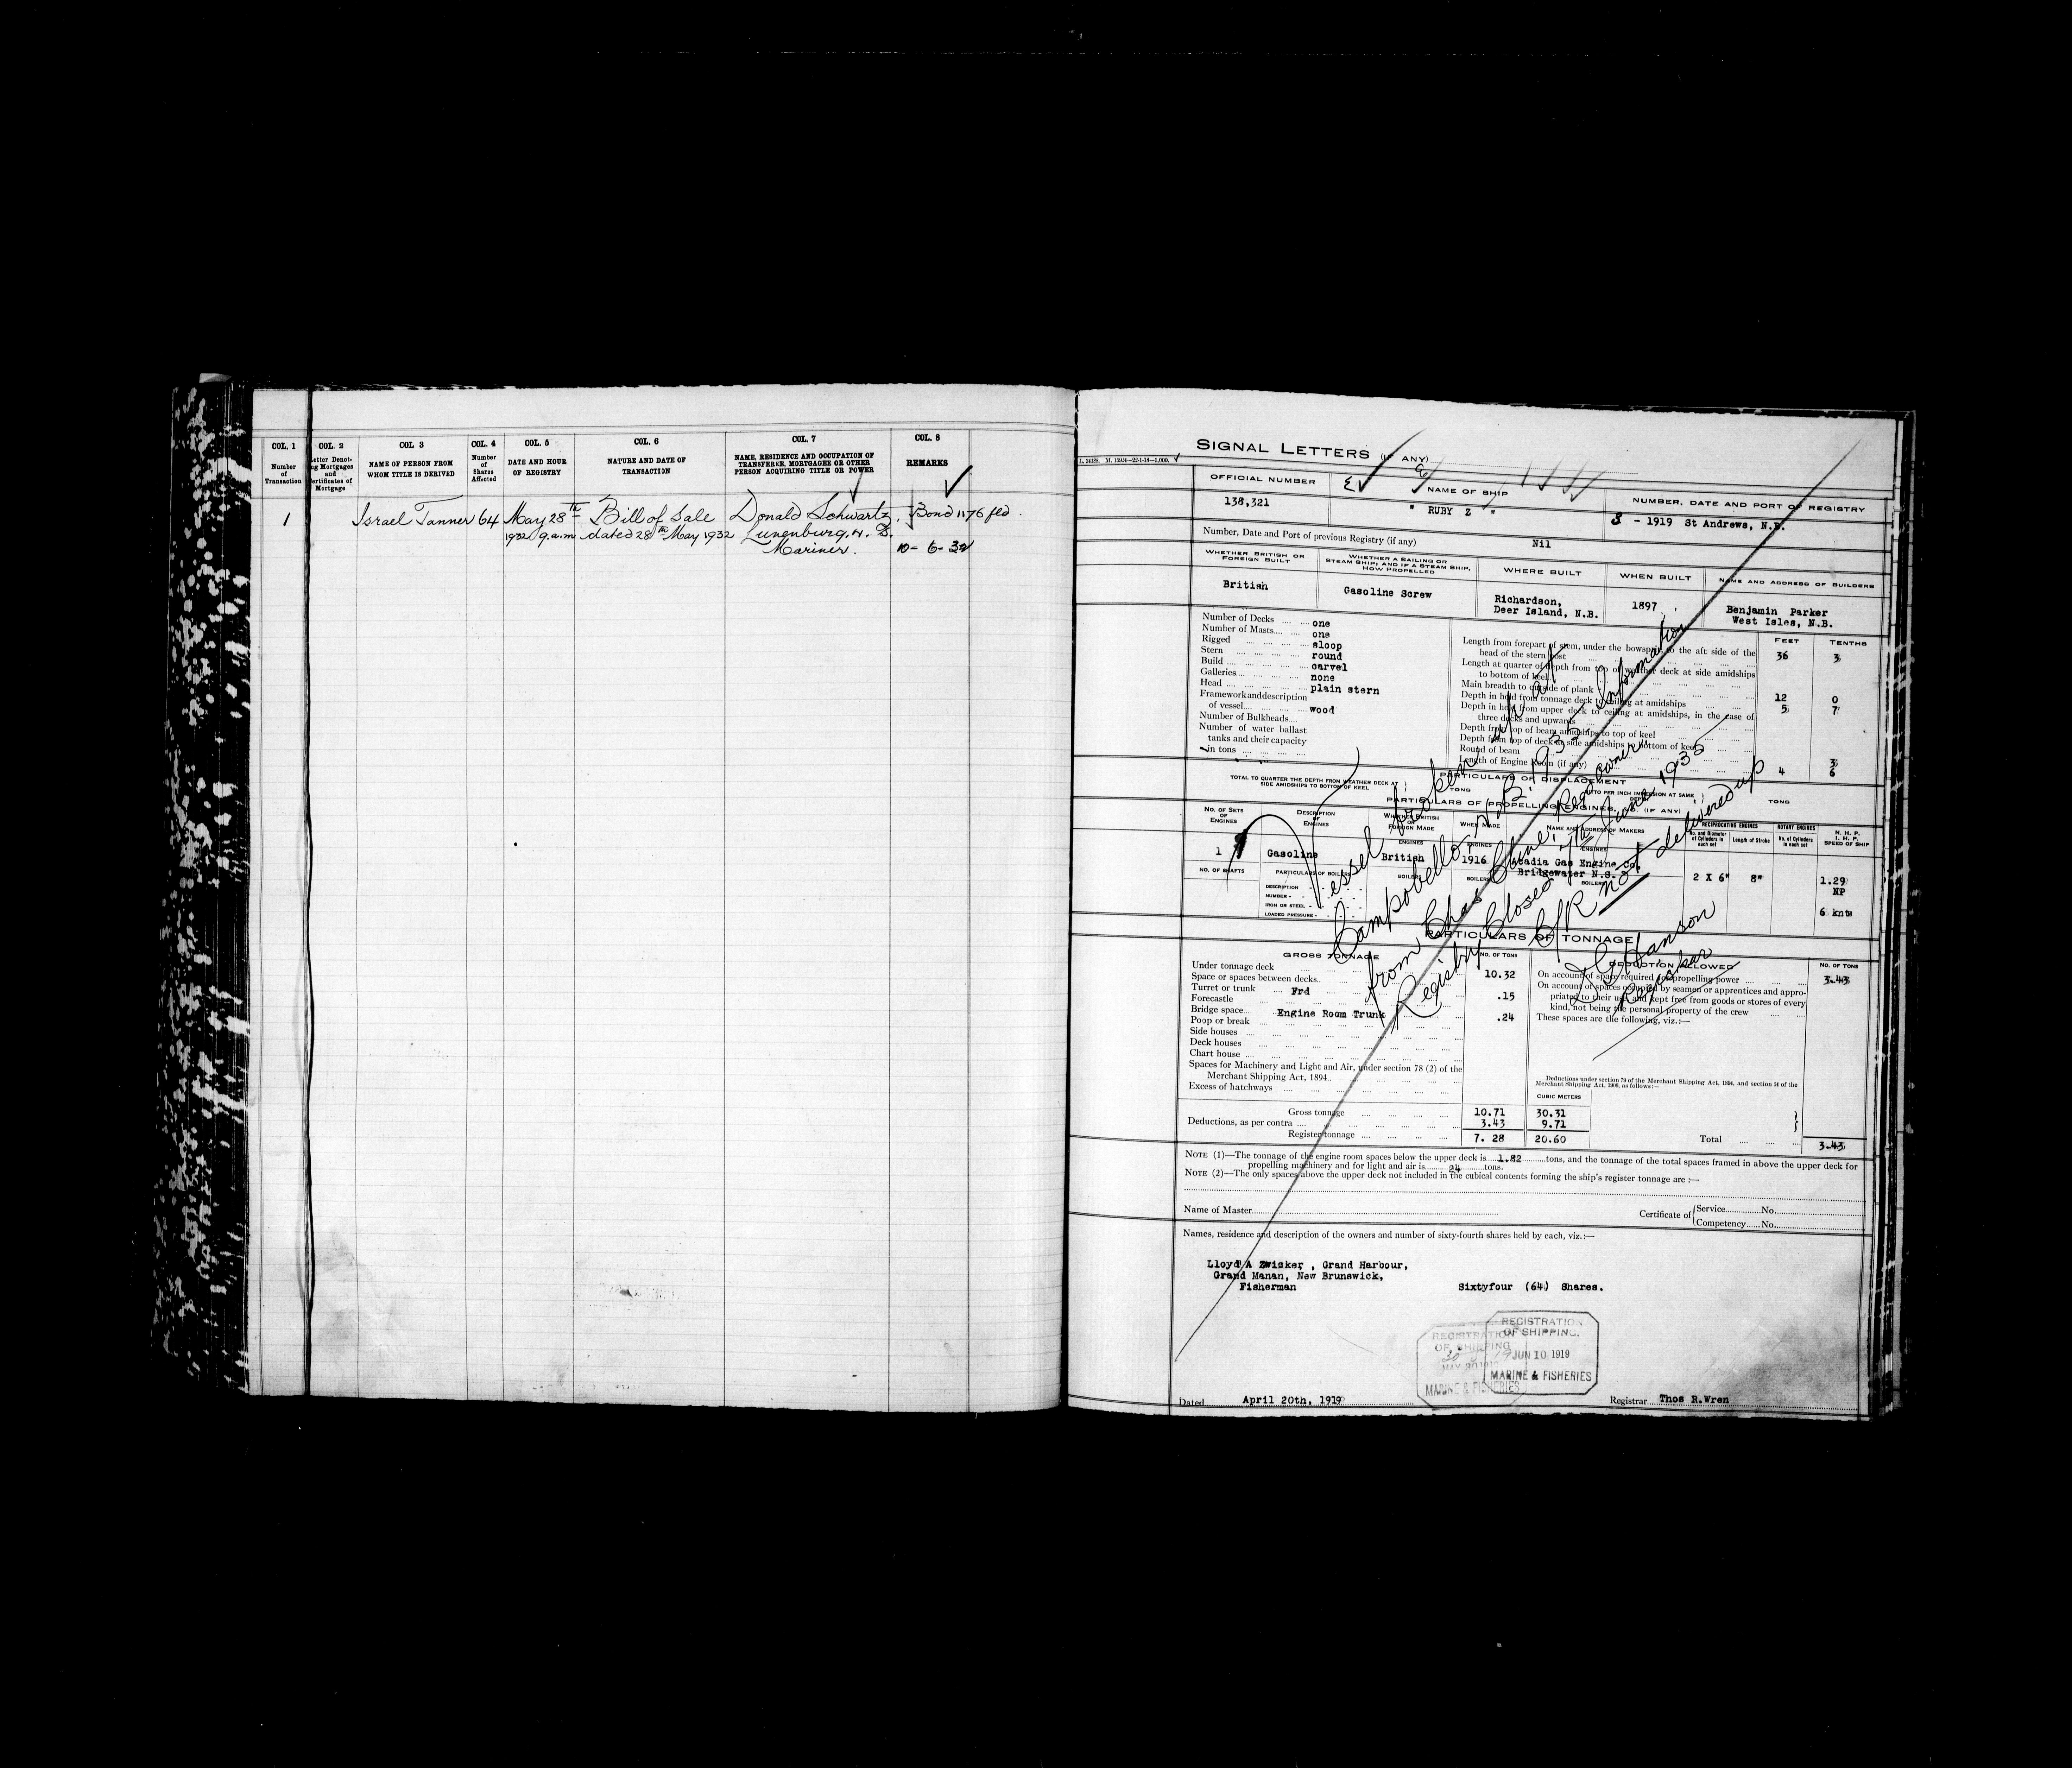 COL. 1
Number
of
Transaction
COL. 2
Letter Denot-
ing Mortgages
and
Certificates of
Mortgage
COL. 3
NAME OF PERSON FROM
WHOM TITLE IS DERIVED
COL. 4
Number
of
Shares
Affected
COL. 5
DATE AND HOUR
OF REGISTRY
COL. 6
NATURE AND DATE OF
TRANSACTION
COL. 7
NAME, RESIDENCE AND OCCUPATION OF
TRANSFEREE, MORTGAGEE OR OTHER
PERSON ACQUIRING TITLE OR POWER
COL. 8
REMARKS
1 Israel Tanner 64 May 28th Bill of Sale Donald Schwartz, Bond 1176 fld.
1932 9 a.m. dated 28th May 1932 Lunenburg, N. S.
Mariner. 10-6-32
SIGNAL LETTERS (IF ANY)
OFFICIAL NUMBER
138,321
NAME OF SHIP
" RUBY Z "
NUMBER, DATE AND PORT OF REGISTRY
8 - 1919 St Andrews, N.B.
Number, Date and Port of previous Registry (if any) Nil
WHETHER BRITISH OR
FOREIGN BUILT
British
WHETHER A SAILING OR
STEAM SHIP; AND IF A STEAM SHIP,
HOW PROPELLED
Gasoline Screw
WHERE BUILT
Richardson,
Deer Island, N.B.
WHEN BUILT
1897
NAME AND ADDRESS OF BUILDERS
Benjamin Parker
West Isles, N.B.
Number of Decks one
Number of Masts one
Rigged sloop
Stern round
Build carvel
Galleries none
Head plain stern
Framework and description
of vessel wood
Number of Bulkheads
Number of water ballast
tanks and their capacity
in tons
FEET TENTHS
Length from forepart of stem, under the bowsprit, to the aft side of the
head of the stern post 36 3
Length at quarter of depth from top of weather deck at side amidships
to bottom of keel
Main breadth to outside of plank 12 0
Depth in hold from tonnage deck to ceiling at amidships 5 7
Depth in hold from upper deck to ceiling at amidships, in the case of
three decks and upwards
Depth from top of beam amidships to top of keel
Depth from top of deck at side amidships to bottom of keel
Round of beam 3
Length of Engine Room (if any) 4 6
PARTICULARS OF DISPLACEMENT
TOTAL TO QUARTER THE DEPTH FROM WEATHER DECK AT
SIDE AMIDSHIPS TO BOTTOM OF KEEL
TONS
DITTO PER INCH IMMERSION AT SAME
DEPTH
TONS
PARTICULARS OF PROPELLING ENGINES, &C. (IF ANY)
NO. OF SETS
OF
ENGINES
DESCRIPTION
OF
ENGINES
WHETHER BRITISH
OR
FOREIGN MADE
WHEN MADE
NAME AND ADDRESS OF MAKERS
RECIPROCATING ENGINES
No. and Diameter
of Cylinders in
each set
Length of Stroke
ROTARY ENGINES
No. of Cylinders
in each set
N. H. P.
I. H. P.
SPEED OF SHIP
1 Gasoline British 1916 Acadia Gas Engine Co.
Bridgewater N.S.
2 X 6" 8" 1.29
NP
6 knts
NO. OF SHAFTS
PARTICULARS OF BOILERS
DESCRIPTION
NUMBER
IRON OR STEEL
LOADED PRESSURE
Vessel broken up at
Campobello, N.B. 1935 Information
from Chas Cline, Reg. owner
Registry Closed 7th June 1935
C/R not delivered up
Registrar
PARTICULARS OF TONNAGE
GROSS TONNAGE NO. OF TONS
Under tonnage deck 10.32
Space or spaces between decks
Turret or trunk Frd .15
Forecastle
Bridge space Engine Room Trunk .24
Poop or break
Side houses
Deck houses
Chart house
Spaces for Machinery and Light and Air, under section 78 (2) of the
Merchant Shipping Act, 1894
Excess of hatchways
Gross tonnage 10.71 30.31
Deductions, as per contra 3.43 9.71
Register tonnage 7.28 20.60
DEDUCTION ALLOWED NO. OF TONS
On account of space required for propelling power 3.43
On account of spaces occupied by seamen or apprentices and appro-
priated to their use and kept free from goods or stores of every
kind, not being the personal property of the crew
These spaces are the following, viz.:—
Deductions under section 79 of the Merchant Shipping Act, 1894, and section 54 of the
Merchant Shipping Act, 1906, as follows:—
CUBIC METERS
Total 3.43
NOTE (1)—The tonnage of the engine room spaces below the upper deck is 1.82 tons, and the tonnage of the total spaces framed in above the upper deck for
propelling machinery and for light and air is 24 tons.
NOTE (2)—The only spaces above the upper deck not included in the cubical contents forming the ship's register tonnage are :—
Name of Master
Certificate of Service No.
Competency No.
Names, residence and description of the owners and number of sixty-fourth shares held by each, viz.:—
Lloyd A Zwicker , Grand Harbour,
Grand Manan, New Brunswick,
Fisherman Sixtyfour (64) Shares.
REGISTRATION
OF SHIPPING
MARINE & FISHERIES
REGISTRATION
OF SHIPPING.
JUN 10 1919
MARINE & FISHERIES
Dated April 20th, 1919 Registrar Thos R.Wren